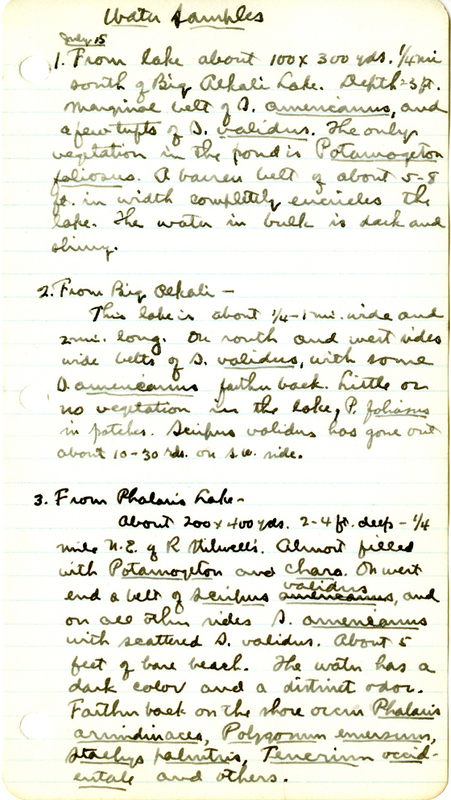 Water Samples
July 15
1. From lake about 100 x 300 yds. 1/4 mi
south of Big Alkali Lake. Depth - 3 ft.
Marginal belt of S. americanus, and
a few tufts of S. validus. The only
vegetation in the pond is Potamogeton
foliosus. A barren belt of about 5-8
ft. in width completely encircles the
lake. The water in bulk is dark and
slimy.
2. From Big Alkali -
This lake is about 1/4 - 1 mi. wide and
2 mi. long. On south and west sides
wide belts of S. validus, with some
S. americanus farther back. Little or
no vegetation in the lake, P. foliosus
in patches. Scirpus validus has gone out
about 10-30 rds. on s.w. side.
3. From Phalaris Lake -
About 200 x 400 yds. 2-4 ft. deep - 1/4
mile N.E. of R. Stilwell's. Almost filled
with Potamogeton and chara. On west
end a belt of Scirpus americanus validus, and
on all other sides S. americanus
with scattered S. validus. About 5
feet of bare beach. The water has a
dark color and a distinct odor.
Farther back on the shore occur Phalaris
arundinacea, Polygonum emersum,
Stachys palustris, Teucrium occid-
entale and others.